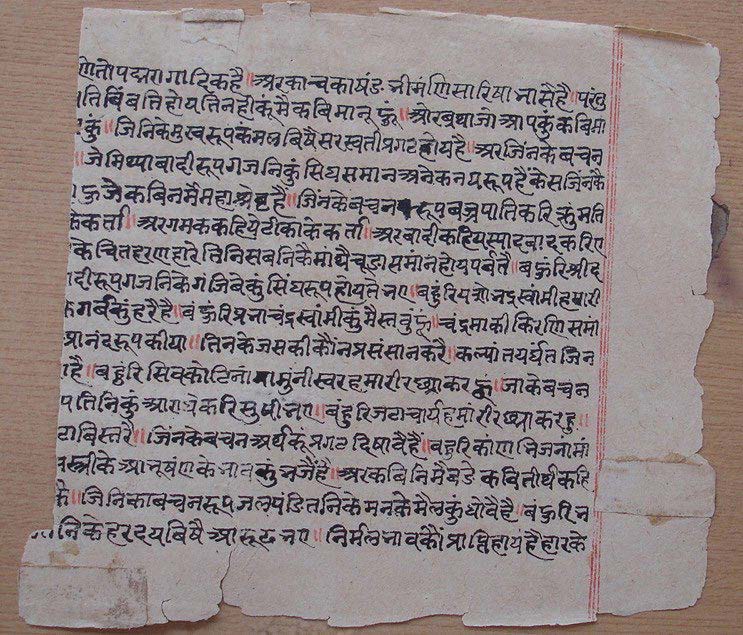 तो पद्मरागादिक है॥ अर काच का षंड भी मणि सारिषा भासै है॥ परंतु
बिंबति होय तिन ही कूं मै कबि मानू हूं॥ ओर बृथा जो आप कुं कबि मा
कुं॥ जिनिके मुखरूप कंमल बिषै सरस्वती प्रगट होय है॥ अर जिंनके बचन
॥ जे मिथ्याबादी रूप गजनि कुं सिंघ समान अनेक नयरूप है केस जिंनकै
जे कबिन मै महा श्रेष्ट है॥ जिंनके बचन रूप बज्रपात करि कुंमति
के कर्ता॥ अर गमक कहिए टीका के कर्ता॥ अर बादी कहिए स्यादबाद करि
के चित हरणहारे तिनि सबनि कै माथै चूडा समान होय प्रबर्तै॥ बहुरि श्री द
दी रूप गजनि के गंजिबे कुं सिंघ रूप होते भए॥ बहुंरि यशोभद्र स्वांमी हमारी
गर्ब कुं हरै है॥ बहुरि प्रभाचंद्र स्वांमी कुं मै स्तवुं हूं॥ चंद्रमा की किरणि समां
आनंद रूप कीया॥ तिनके जस की कौंन प्रसंसा न करै॥ कल्पांत पर्यंत जिन
है॥ बहुरि सिवकोटि नांमा मुंनीस्वर हमारी रछ्या करहु॥ जाके बचन
तिनि कुं आराधे करि सुषी भए॥ बहुंरि जटाचार्य हमारी रछ्या करहु॥
बिस्तरै॥ जिंनके बचन अर्थ कूं प्रगट दिषावै है॥ बहुरि काणभिज नांमां
स्त्री के आभूषंण के भाव कुं भजै है॥ अर कबिनि मै बडे कवि तीर्थ कहि
॥ जिनिका बचन रूप जल पंडितनि के मन के मैल कुं धोवै है॥ बहुरि भ
नि के हरदय बिषै आरूढ भए॥ निर्मल भाव कौं प्राप्ति होय है हार के